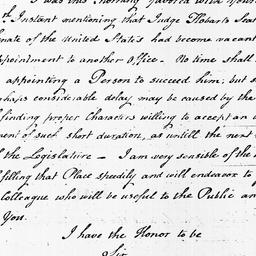 I was this Morning favored with your
th Instant mentioning that Judge Hobarts Seat
nate of the United States had become vacant
ppointment to another Office – No time shall
appointing a Person to succeed him; but s
haps considerable delay may be caused by the
finding proper Characters willing to accept an
ment of such short duration, as untill the next
f the Legislature – I am very sensible of the
filling that Place speedily and will endeavor to
Colleague who will be useful to the Public an
You.
I have the Honor to be
Sir